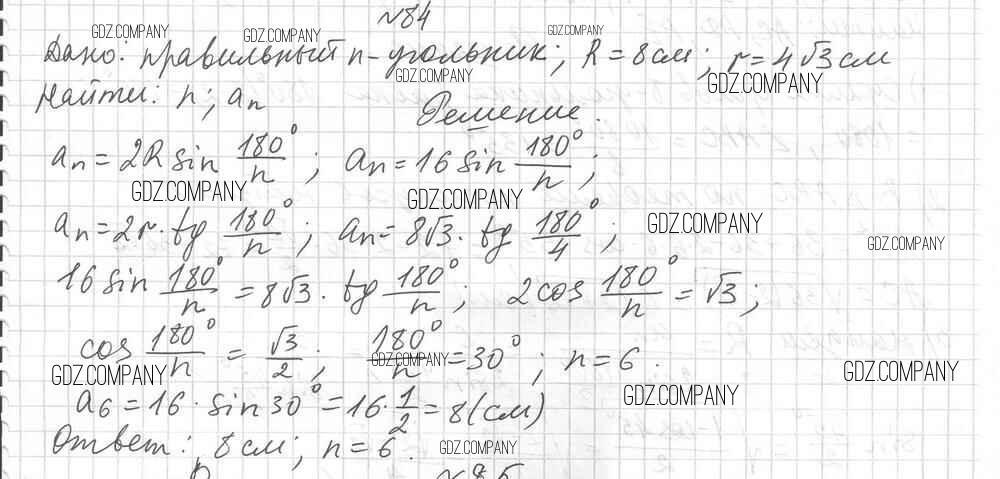 №84
GDZ.COMPANY GDZ.COMPANY GDZ.COMPANY
Дано: правильный n-угольник; R = 8 см; r = 4√3 см
GDZ.COMPANY GDZ.COMPANY
Найти: n; aₙ
Решение.
aₙ = 2R sin 180°/n; aₙ = 16 sin 180°/n;
GDZ.COMPANY GDZ.COMPANY
aₙ = 2r · tg 180°/n; aₙ = 8√3 · tg 180°/4;
GDZ.COMPANY GDZ.COMPANY
16 sin 180°/n = 8√3 · tg 180°/n; 2 cos 180°/n = √3;
cos 180°/n = √3/2; 180°/n = 30°; n = 6.
GDZ.COMPANY GDZ.COMPANY GDZ.COMPANY GDZ.COMPANY
a₆ = 16 · sin 30° = 16 · 1/2 = 8 (см)
Ответ: 8 см; n = 6.
GDZ.COMPANY
№85